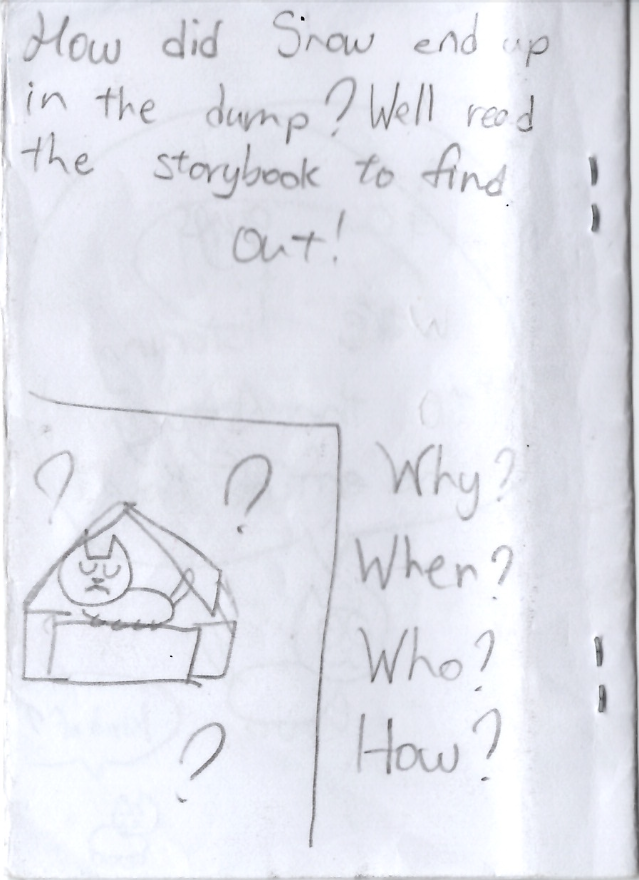 How did Snow end up
in the dump? Well read
the storybook to find
out!
? ?
Why?
When?
Who?
?
How?